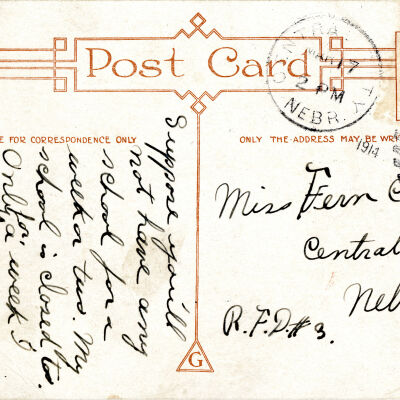 Post Card
E FOR CORRESPONDENCE ONLY
ONLY THE ADDRESS MAY BE WRI
CENTRAL CITY
MAR 17
2 PM
NEBR.
1914
Suppose you'll
not have any
school for a
week or two. My
school is closed to.
Only for
a week I
Miss Fern C
Central
Neb
R.F.D.#3.
G